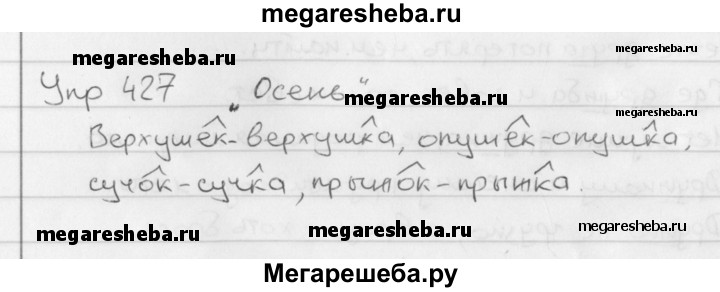 megaresheba.ru
megaresheba.ru
Упр 427 „Осень"
megaresheba.ru
megaresheba.ru
Верхушек-верхушка, опушек-опушка,
сучок-сучка, прыжок-прыжка.
megaresheba.ru
megaresheba.ru
megaresheba.ru
Мегарешеба.ру